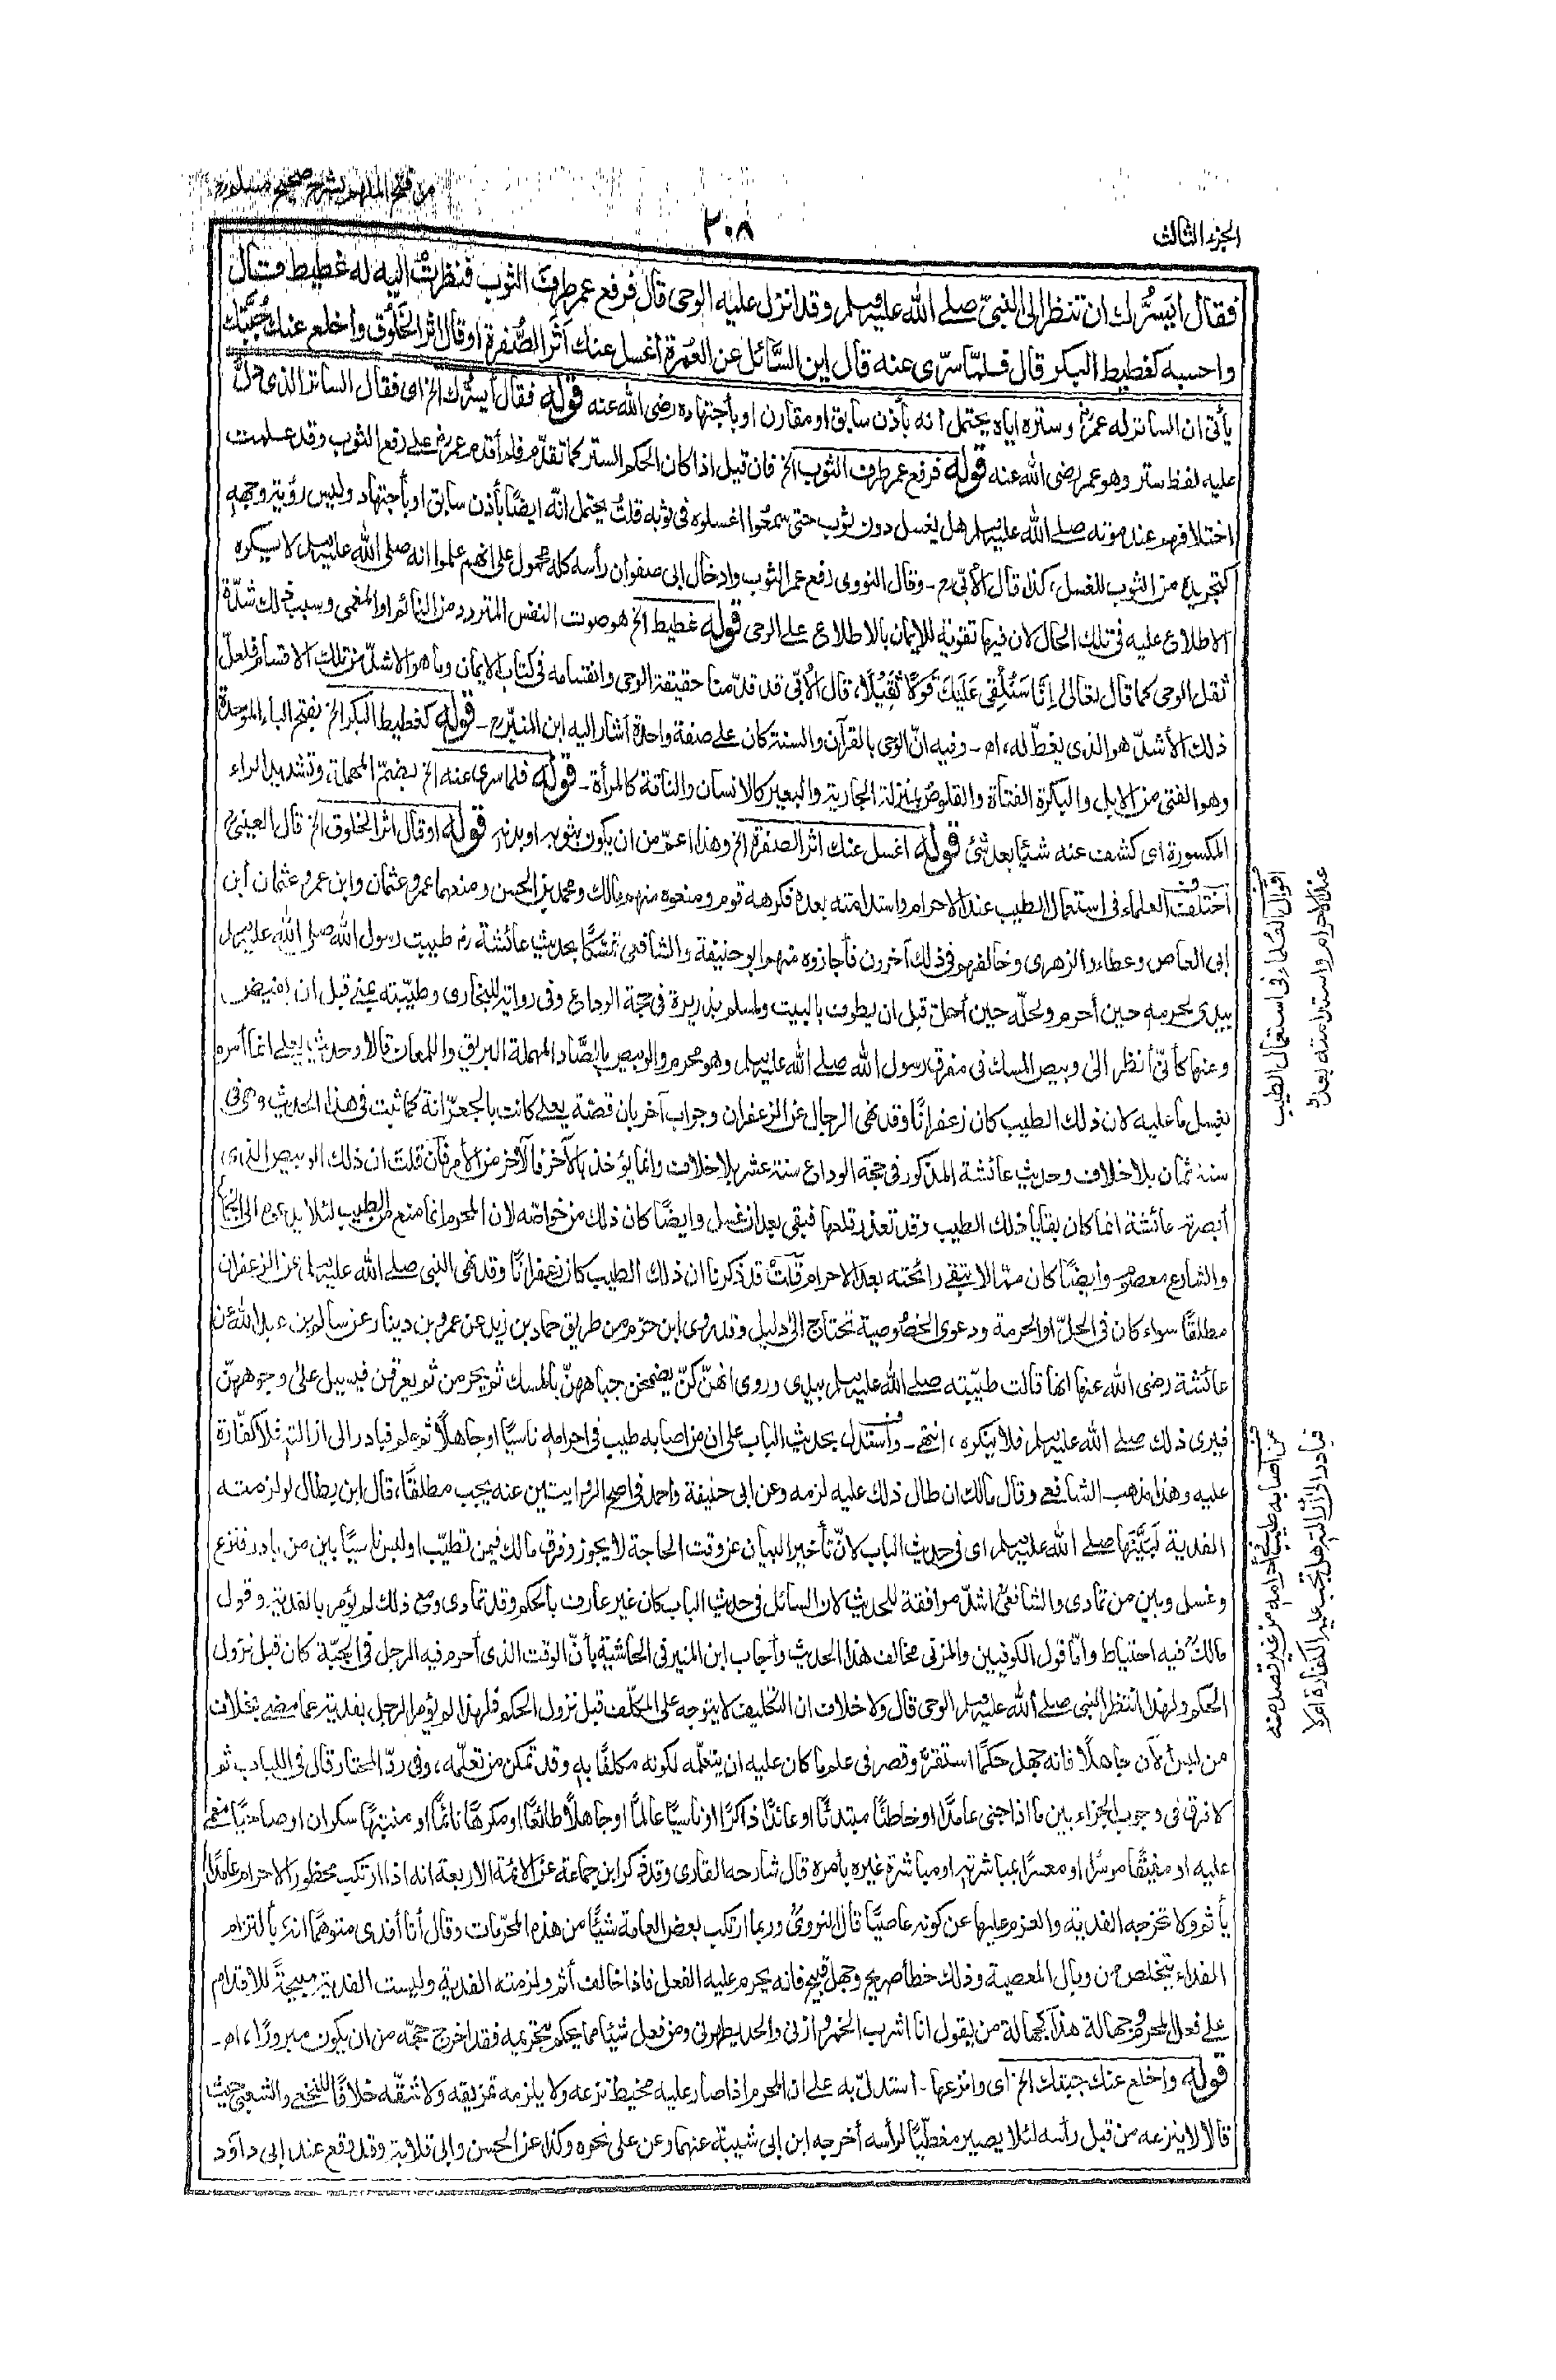 من فتح الملهم بشرح صحيح مسلم
٢٠٨
الجزء الثالث
فقال أيسرّك ان تنظر الى النبيّ صلى الله عليه وسلم وقد انزل عليه الوحى قال فرفع عمر طرف الثوب فنظرتُ اليه له غطيط قال
واحسبه كغطيط البكر قال فلمّا سرّى عنه قال اين السّائل عن العُمرة اغسل عنك اَثَر الصُّفرة او قال اثر الخَلُوق واخلع عنك جُبَّتك
يأتى ان الساتر له عمرؓ وستره اياه يحتمل انه بأذن سابق او مقارن او بأجتهاده رضى الله عنه قوله فقال أيسرّك الخ اى فقال الساتر الذى دلّ
عليه لفظ ستر وهو عمر رضى الله عنه قوله فرفع عمر طرف الثوب الخ فان قيل اذا كان الحكم الستر كما تقدّم فلم أقدم عمر رض على رفع الثوب وقد علمت
اختلافهم عند موته صلى الله عليه وسلم هل يغسل دون ثوب حتى سمعُوا اغسلوه فى ثوبه قلتُ يحتمل انّه ايضًا بأذن سابق او بأجتهاد وليس رؤية وجهه
كتجريده من الثوب للغسل، كذا قال الأبّى رح - وقال النووى رفع عمر الثوب وادخال ابى صفوان رأسه كله محمول على انهم علموا انه صلى الله عليه وسلم لا يكره
الاطلاع عليه فى تلك الحال لان فيها تقوية للايمان بالاطلاع على الوحى قوله غطيط الخ هو صوت النفس المتردد من النائم او المغمى وسبب ذلك شدّة
ثقل الوحى كما قال تعالى اِنَّا سَنُلْقِى عَلَيْكَ قَوْلًا ثَقِيْلًا، قال الأبّى قد قدّمنا حقيقة الوحى وانقسامه فى كتاب الايمان وما هو الاشدّ من تلك الاقسام فلعلّ
ذلك الأشدّ هو الذى يغطّ له، اه - وفيه انّ الوحى بالقرآن والسنة كان على صفة واحدة أشار اليه ابن المنيّر رح - قوله كغطيط البكر الخ بفتح الباء الموحدة
وهو الفتى من الابل والبكرة الفتاة والقلوص بمنزلة الجارية والبعير كالانسان والناقة كالمرأة - قوله فلما سرى عنه الخ بضمّ المهملة وتشديد الراء
المكسورة اى كشف عنه شيئًا بعد شئ قوله اغسل عنك اثر الصفرة الخ وهذا اعمّ من ان يكون بثوبه او بدنه قوله او قال اثر الخلوق الخ قال العينى رح
اختلف العلماء فى استعمال الطيب عند الاحرام واستدامته بعده فكرهه قوم ومنعوه منهم مالك ومحمد بن الحسن ومنعهما عمر وعثمان وابن عمر وعثمان ابن
ابى العاص وعطاء والزهرى وخالفهم فى ذلك آخرون فأجازوه منهم ابو حنيفة والشافعى تمسّكًا بحديث عائشة رض طيبت رسول الله صلى الله عليه وسلم
بيدى لحرمه حين أحرم ولحلّه حين أحلّ قبل ان يطوف بالبيت ولمسلم بذريرة فى حجة الوداع وفى رواية للبخارى وطيّبته بمنى قبل ان يفيض
وعنها كأنّى أنظر الى وبيص المسك فى مفرق رسول الله صلى الله عليه وسلم وهو محرم والوبيص بالصّاد المهملة البريق واللمعان قالا وحديث يعلى انما أمره
بغسل ما عليه لان ذلك الطيب كان زعفرانًا وقد نهى الرجال عن الزعفران وجواب آخر بان قصّة يعلى كانت بالجعرّانة كما ثبت فى هذا الحديث وهى فى
سنة ثمان بلا خلاف وحديث عائشة المذكور فى حجة الوداع سنة عشر بلا خلاف وانما يؤخذ بالآخر فالآخر من الأمر فان قلت ان ذلك الوبيص الذى
أبصرته عائشة انما كان بقايا ذلك الطيب وقد تعذر قلعها فبقى بعد ان غسل وايضًا كان ذلك من خواصّه لان المحرم انما منع من الطيب لئلا يدعوه الى الجماع
والشارع معصوم وأيضًا كان ممّا لا يبقى رائحته بعد الاحرام قلتُ قد ذكرنا ان ذلك الطيب كان زعفرانًا وقد نهى النبى صلى الله عليه وسلم عن الزعفران
مطلقًا سواء كان فى الحلّ او الحرمة ودعوى الخصُوصية تحتاج الى دليل وقد روى ابن حزم من طريق حماد بن زيد عن عمرو بن دينار عن سالم بن عبد الله عن
عائشة رضى الله عنها انها قالت طيّبته صلى الله عليه وسلم بيدى وروى انهنّ كنّ يضمخن جباههنّ بالمسك ثم يحرمن ثم يعرقن فيسيل على وجوههنّ
فيرى ذلك صلى الله عليه وسلم فلا ينكره، انتهى - واستدل بحديث الباب على ان من اصابه طيب فى احرامه ناسيًا او جاهلًا ثم علم فبادر الى ازالته فلا كفّارة
عليه وهذا مذهب الشافعى وقال مالك ان طال ذلك عليه لزمه وعن ابى حنيفة واحمد فى اصح الروايتين عنه يجب مطلقًا، قال ابن بطال لو لزمته
الفدية لَبَيَّنَها صلى الله عليه وسلم اى فى حديث الباب لانّ تأخير البيان عن وقت الحاجة لا يجوز وفرق مالك فيمن تطيّب او لبس ناسيًا بين من بادر فنزع
وغسل وبين من تمادى والشافعىؒ اشدّ موافقة للحديث لان السائل فى حديث الباب كان غير عارف بالحكم وقد تمادى ومع ذلك لم يؤمر بالفدية وقول
مالكؒ فيه احتياط وامّا قول الكوفيين والمزنى مخالف هذا الحديث وأجاب ابن المنير فى الحاشية بأنّ الوقت الذى أحرم فيه الرجل فى الجبّة كان قبل نزول
الحكم ولهذا انتظر النبى صلى الله عليه وسلم الوحى قال ولا خلاف ان التكليف لا يتوجه على المكلّف قبل نزول الحكم فلهذا لم يؤمر الرجل بفدية عما مضى بخلاف
من لبس الآن جاهلًا فانه جهل حكمًا استقرّ وقصر فى علم ما كان عليه ان يتعلّمه لكونه مكلفًا به وقد تمكن من تعلّمه، وفى ردّ المحتار قال فى اللباب ثم
لا فرق فى وجوب الجزاء بين ما اذا جنى عامدًا او خاطئًا مبتدئًا او عائدًا ذاكرًا او ناسيًا عالمًا او جاهلًا طائعًا او مكرهًا نائمًا او منتبهًا سكران او صاحيًا مغمى
عليه او مفيقًا موسرًا او معسرًا بمباشرته او مباشرة غيره بأمره قال شارحه القارى وقد ذكر ابن جماعة عن الائمة الاربعة انه اذا ارتكب محظور الاحرام عامدًا
يأثم ولا تخرجه الفدية والعزم عليها عن كونه عاصيًا قال النووىؒ وربما ارتكب بعض العامة شيئًا من هذه المحرّمات وقال أنا أفدى متوهمًا انه بالتزام
الفداء يتخلص من وبال المعصية وذلك خطأ صريح وجهل قبيح فانه يحرم عليه الفعل فاذا خالف أثم ولزمته الفدية وليست الفدية مبيحةً للاقدام
على فعل المحرم وجهالة هذا كجهالة من يقول انا اشرب الخمر وازنى والحد يطهرنى ومن فعل شيئًا مما يحكم بتحريمه فقد اخرج حجّه من ان يكون مبرورًا، اه -
قوله واخلع عنك جبتك الخ اى وانزعها - استدلّ به على ان المحرم اذا صار عليه مخيط نزعه ولا يلزمه تمزيقه ولا شقّه خلافًا للنخعى والشعبى حيث
قالا لا ينزعه من قبل رأسه لئلا يصير مغطّيًا لرأسه أخرجه ابن ابى شيبة عنهما وعن على نحوه وكذا عن الحسن وابى قلابة وقد وقع عند ابى داود
اقوال العُلماء فى استعمال الطيب
عند الاحرام واستدامته بعده
من اصابه طيب فى احرامه من غير قصد منه
فبادر الى ازالته هل تجب عليه الكفارة ام لا